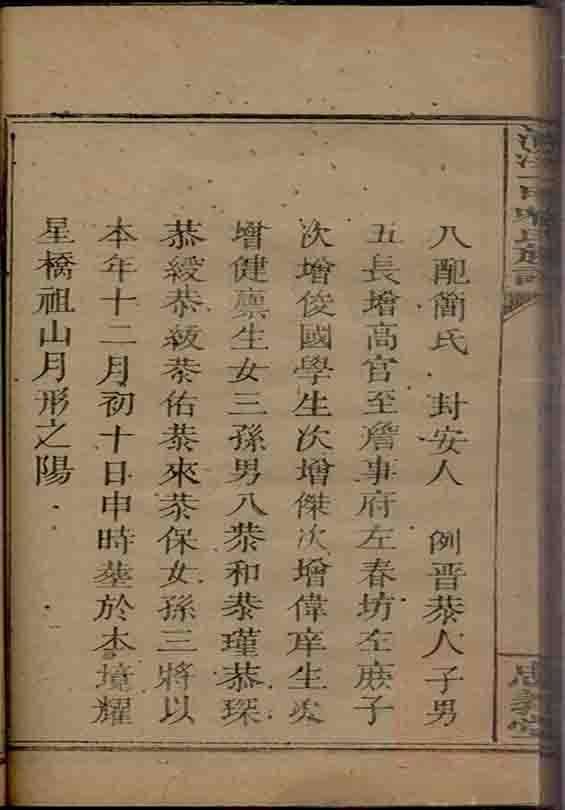 八配簡氏 封安人 例晋恭人子男
五長增高官至詹事府左春坊左庶子
次增俊國學生次增傑次增偉庠生次
增健廪生女三孫男八恭和恭瑾恭琛
恭綬恭紱恭佑恭來恭保女孫三將以
本年十二月初十日申時塟於本境耀
星橋祖山月形之陽